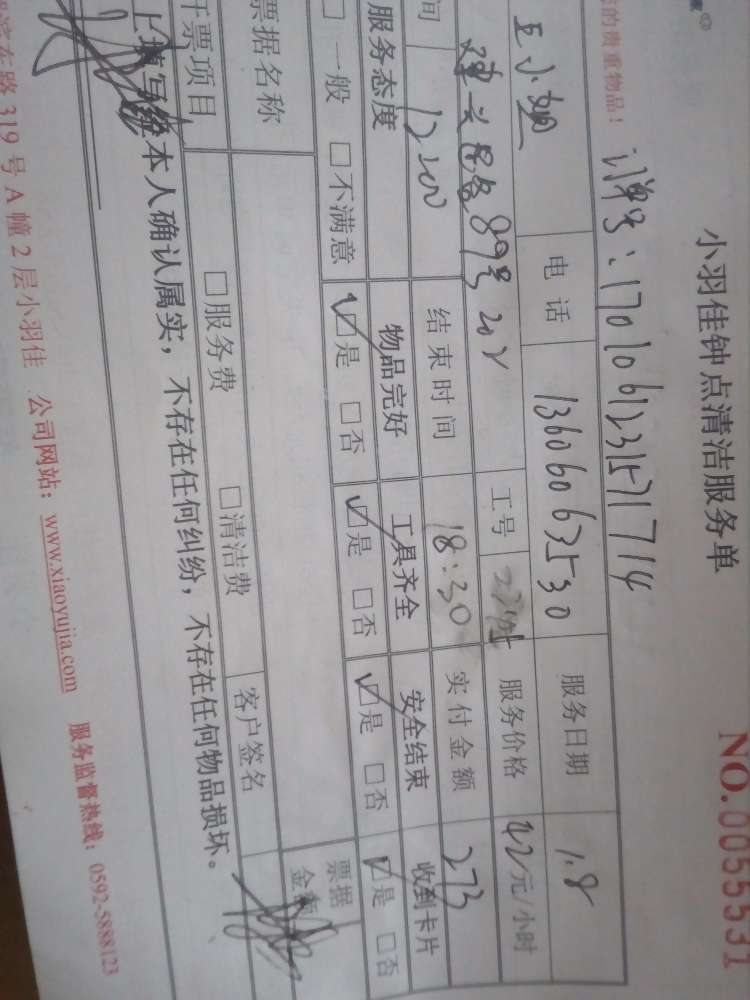 小羽佳钟点清洁服务单
NO.0055531
的贵重物品！ 订单号：1701061231571714
王小姐 电话 13606063530 服务日期 1.8
89号202 工号 服务价格 42元/小时
间 结束时间 18:30 实付金额 273
服务态度 物品完好 工具齐全 安全结束 收到卡片
□一般 □不满意 ☑是 □否 ☑是 □否 ☑是 □否 ☑是 □否
票据名称 票据金额
开票项目 □服务费 □清洁费 客户签名
上填写经本人确认属实，不存在任何纠纷，不存在任何物品损坏。
滨东路319号A幢2层小羽佳 公司网站：www.xiaoyujia.com 服务监督热线：0592-5888123